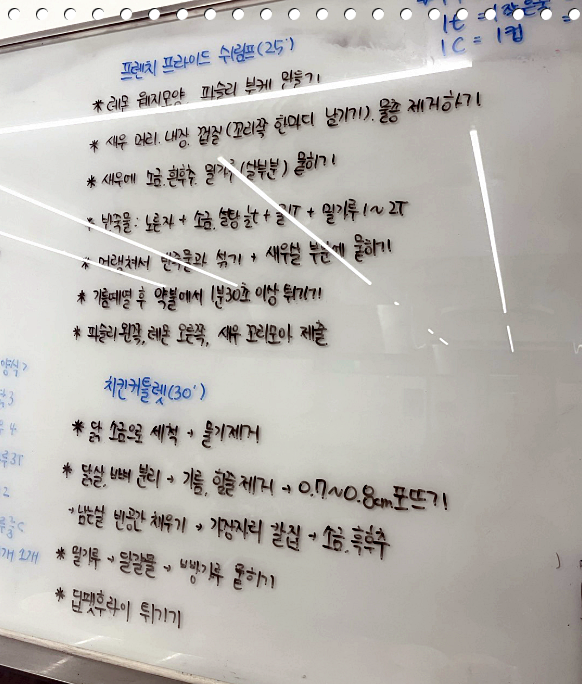 1t =
1C = 1컵
프렌치 프라이드 쉬림프(25')
* 레몬 웨지모양, 파슬리 부케 만들기
* 새우 머리, 내장, 껍질(꼬리쪽 한마디 남기기), 물총 제거하기
* 새우에 소금, 흰후추, 밀가루(살부분) 뭍히기
* 반죽물: 노른자 + 소금, 설탕 + + 밀가루 1~2T
* 머랭쳐서 반죽물과 섞기 + 새우살 부분에 뭍히기
* 기름예열 후 약불에서 1분30초 이상 튀기기
* 파슬리왼쪽, 레몬 오른쪽, 새우 꼬리모아 제출
치킨커틀렛(30')
* 닭 소금으로 세척 → 물기제거
* 닭살, 뼈 분리 → 기름, 힘줄 제거 → 0.7~0.8cm포뜨기
→ 남는살 빈공간 채우기 → 가장자리 칼집 → 소금, 흑후추
* 밀가루 → 달걀물 → 빵가루 뭍히기
* 딥팻후라이 튀기기